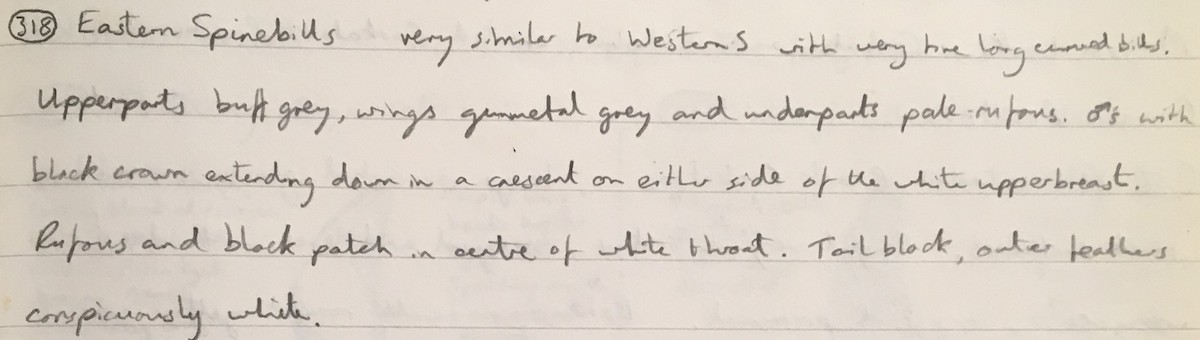 (318) Eastern Spinebills very similar to Westerns with very fine long curved bills.
Upperparts buff grey, wings gunmetal grey and underparts pale rufous. ♂'s with
black crown extending down in a crescent on either side of the white upperbreast.
Rufous and black patch in centre of white throat. Tail black, outer feathers
conspicuously white.